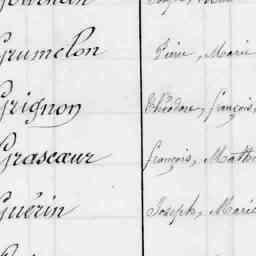 Grumelon Pierre, Marie
Grignon Théodore, françois,
Grascœur françois, Mathu
Guérin Joseph, Marie